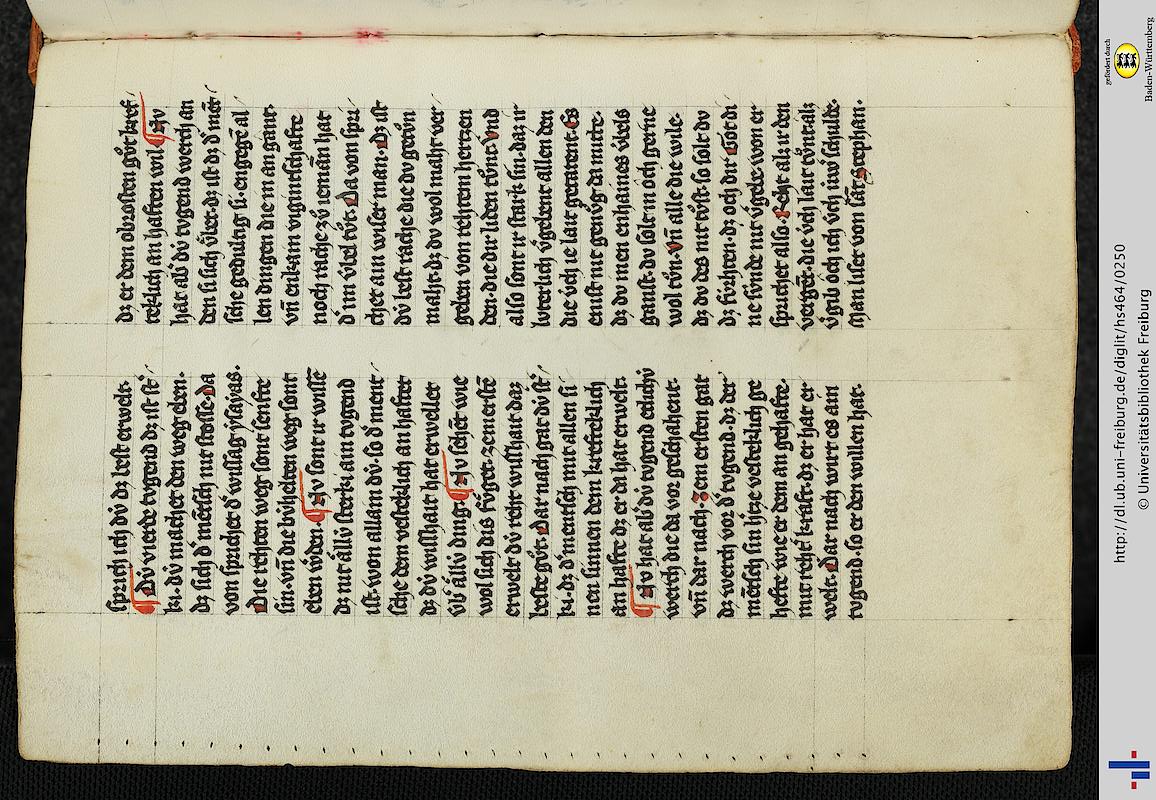 sprich ich dv́ dz best erwelt.
Dv́ vierde tvgend dz ist st̾
ki. dv́ machet den weg eben.
dz sich d̾ mētsch nit stosse. Da
von sprichet d̾ wissag ysaẏas.
Die rehten weg sont senfte
sin. vn̄ die bv́heleten weg sont
eben w̾den. Nv sont ir wissē
dz nit ällv́ sterki ain tvgend
ist. won allain dv́. so d̾ ment
sche dem vesteklich an haftet
dz dv́ wishait hat erwellet
v̾b ällv́ ding. Nv sehēt wie
wol sich dis fv́get. zemersstē
erwelt dv́ reht wishait daz
beste gv̊t. Dar nach gat dv́ st̾
ki. dz d̾ mentsch mit allen si
nen sinnen dem krefteklich
an hafte dz er da hat erwelt.
Nv hat ab̾ dv́ tvgend etlichv́
werch die da vor geschahent.
vn̄ dar nach. Zem ersten gat
dz werch vor d̾ tvgend. dz der
mētsch sin h̾tze vesteklich ge
hefte wie er dem an gehafte.
mit reht̾ kraft. dz er hat er
welt. Dar nach wirt es ain
tvgend. so er den willen hat.
dz er dem obrosten gv̊t kref
teklich an haften wil. Nv
hat ab̾ dv́ tvgend werch an
den si sich v̊bet. dz ist dz d̾ mēt
sche gedultig si. engegē al
len dingen die im an gant.
vn̄ enkain vigintschafte
noch rache zv̊ iemān hat
d̾ im v́bel tv̊t. Da von spri
chet ain wiser man. Dz ist
dv́ best rache die dv getv̊n
maht. dz dv wol maht ver
geben von rehtem hertzen
den. die dir liden tv̊nt. Vnd
also sont ir stark sin. daz ir
luterlich v̾gebent allen den
die v́ch ie lait getatent. Es
enist nit genv̊g da mitte.
dz dv inen enhaines v́bels
ganst. dv solt in och gerne
wol tv̊n. Vn̄ alle die wile.
dz dv des nit tv̊st. so solt dv
dz fv́rhten. dz och dir Got di
ne sv́nde nit v̾gebe. won er
sprichet also. Reht als ir den
vergēt. die v́ch lait tv̊nt. als
v̾gib och ich v́ch iuw̾ schulde.
Man liset von sāt Stephan.